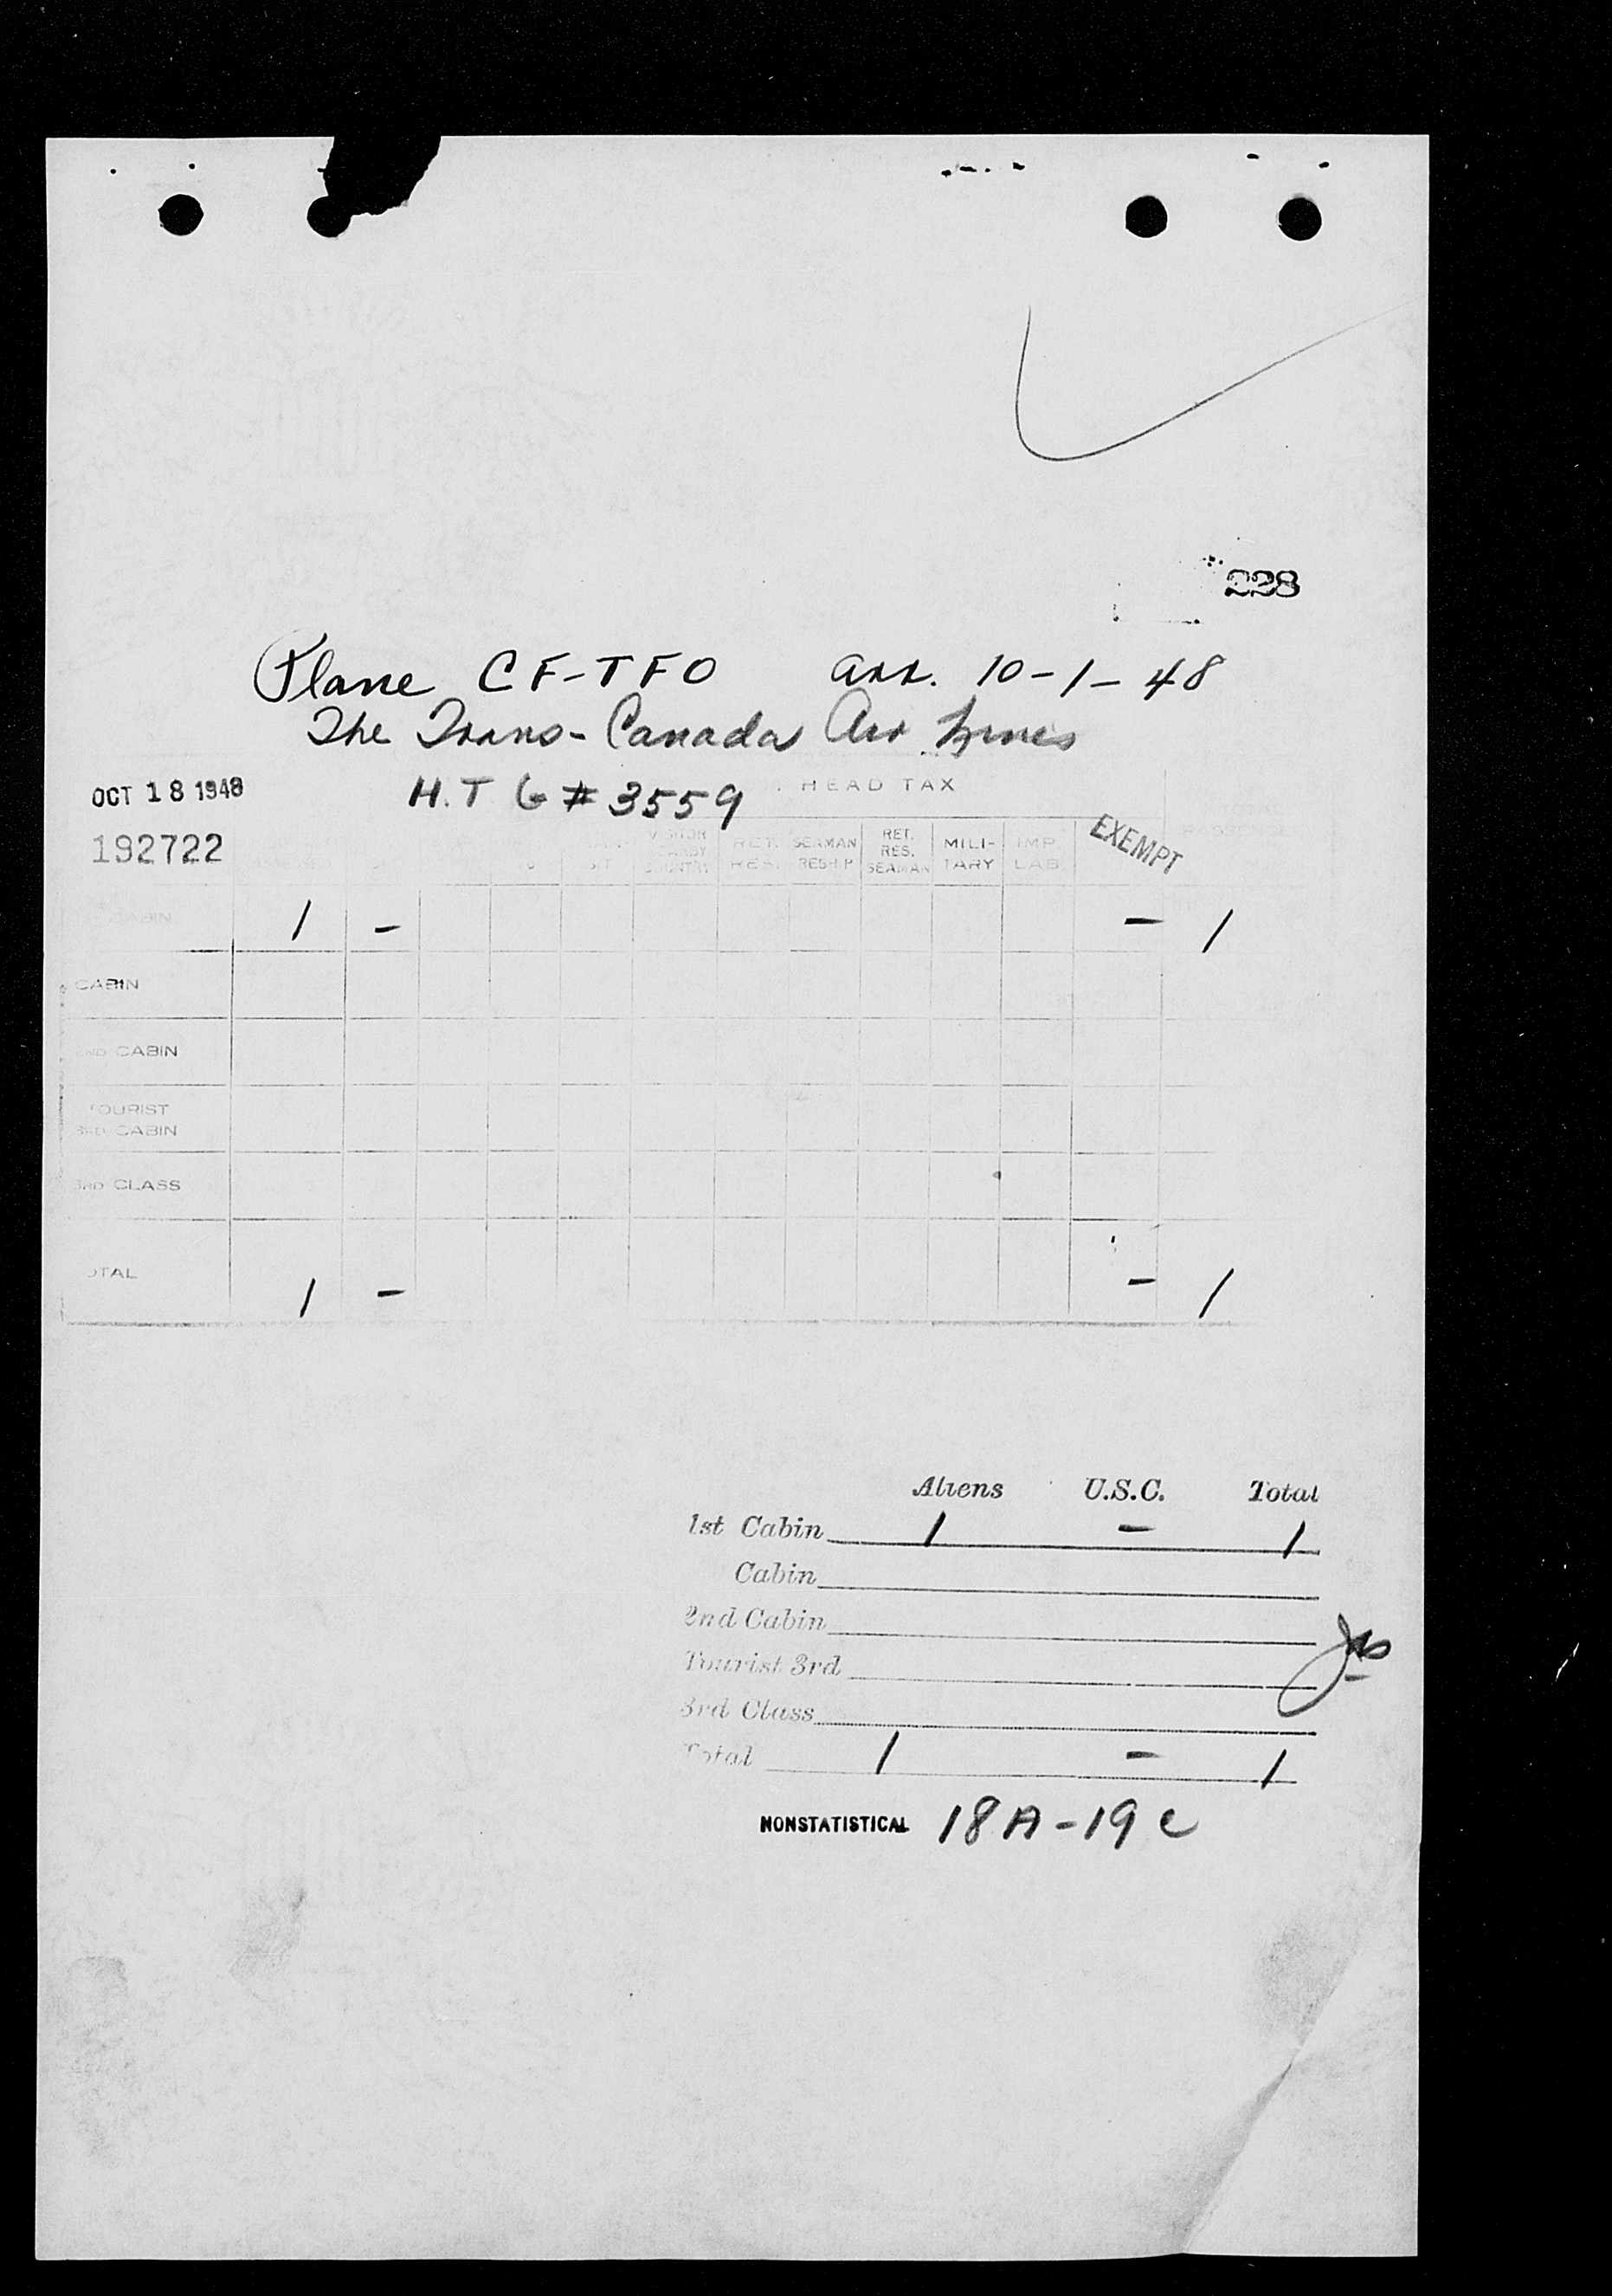 228
Plane CF-TFO arr. 10-1-48
The Trans-Canada Air Lines
OCT 18 1948 H.T G # 3559 HEAD TAX
192722
VISITOR NEARBY COUNTRY RET. RES. SEAMAN RESHIP RET. RES. SEAMAN MILI- TARY IMP. LAB. EXEMPT
CABIN 1 - - 1
CABIN
2ND CABIN
TOURIST
3RD CABIN
3RD CLASS
TOTAL 1 - - 1
Aliens U.S.C. Total
1st Cabin 1 - 1
Cabin
2nd Cabin
Tourist 3rd
3rd Class
Total 1 - 1
NONSTATISTICAL 18A-19c